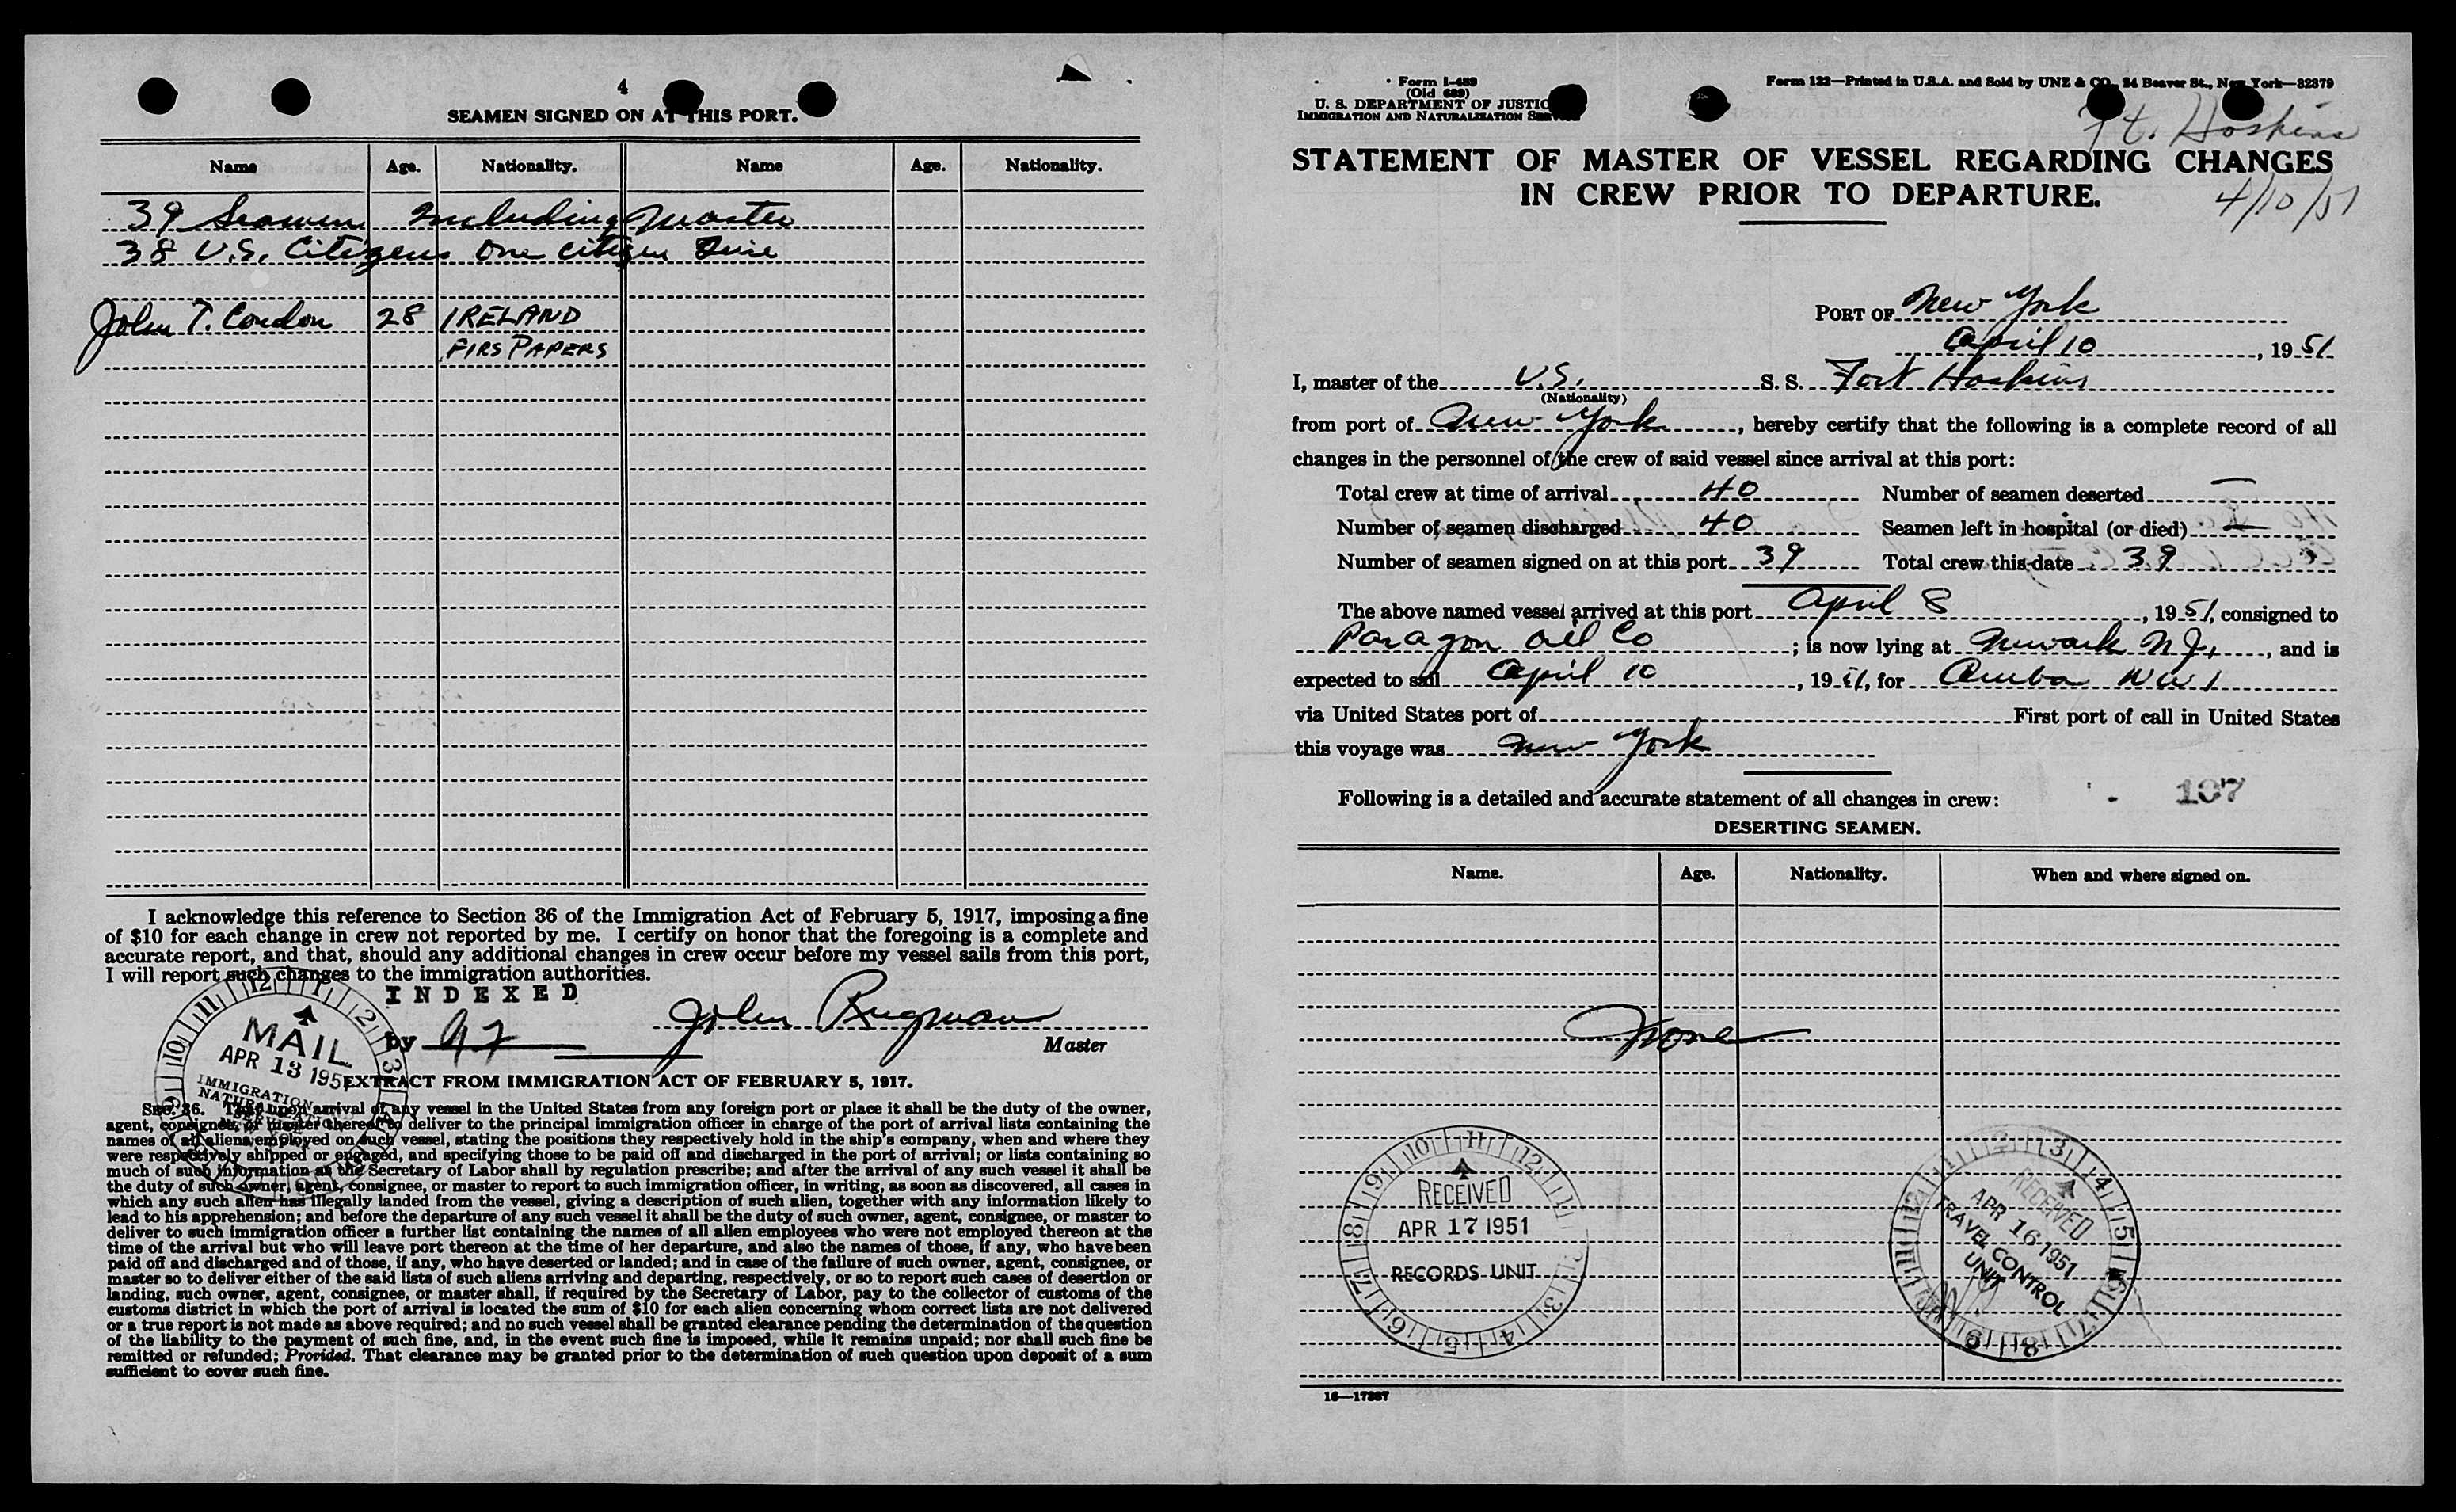 4
SEAMEN SIGNED ON AT THIS PORT.
Name Age. Nationality. Name Age. Nationality.
39 Seamen Including Master
38 U.S. Citizens One citizen Eire
John T. Condon 28 IRELAND
FIRS PAPERS
I acknowledge this reference to Section 36 of the Immigration Act of February 5, 1917, imposing a fine
of $10 for each change in crew not reported by me. I certify on honor that the foregoing is a complete and
accurate report, and that, should any additional changes in crew occur before my vessel sails from this port,
I will report such changes to the immigration authorities.
INDEXED
by
John Rugman
Master
MAIL
APR 13 1951
IMMIGRATION
EXTRACT FROM IMMIGRATION ACT OF FEBRUARY 5, 1917.
SEC. 36. That upon arrival of any vessel in the United States from any foreign port or place it shall be the duty of the owner,
agent, consignee, or master thereof to deliver to the principal immigration officer in charge of the port of arrival lists containing the
names of all aliens employed on such vessel, stating the positions they respectively hold in the ship's company, when and where they
were respectively shipped or engaged, and specifying those to be paid off and discharged in the port of arrival; or lists containing so
much of such information as the Secretary of Labor shall by regulation prescribe; and after the arrival of any such vessel it shall be
the duty of such owner, agent, consignee, or master to report to such immigration officer, in writing, as soon as discovered, all cases in
which any such alien has illegally landed from the vessel, giving a description of such alien, together with any information likely to
lead to his apprehension; and before the departure of any such vessel it shall be the duty of such owner, agent, consignee, or master to
deliver to such immigration officer a further list containing the names of all alien employees who were not employed thereon at the
time of the arrival but who will leave port thereon at the time of her departure, and also the names of those, if any, who have been
paid off and discharged and of those, if any, who have deserted or landed; and in case of the failure of such owner, agent, consignee, or
master so to deliver either of the said lists of such aliens arriving and departing, respectively, or so to report such cases of desertion or
landing, such owner, agent, consignee, or master shall, if required by the Secretary of Labor, pay to the collector of customs of the
customs district in which the port of arrival is located the sum of $10 for each alien concerning whom correct lists are not delivered
or a true report is not made as above required; and no such vessel shall be granted clearance pending the determination of the question
of the liability to the payment of such fine, and, in the event such fine is imposed, while it remains unpaid; nor shall such fine be
remitted or refunded; Provided, That clearance may be granted prior to the determination of such question upon deposit of a sum
sufficient to cover such fine.
Form I-489
(Old 689)
U. S. DEPARTMENT OF JUSTICE
IMMIGRATION AND NATURALIZATION SERVICE
Form 122—Printed in U.S.A. and Sold by UNZ & CO., 24 Beaver St., New York—32379
Ft. Hoskins
STATEMENT OF MASTER OF VESSEL REGARDING CHANGES
IN CREW PRIOR TO DEPARTURE.
4/10/51
PORT OF New York
April 10, 1951
I, master of the U.S. S. S. Fort Hoskins
(Nationality)
from port of New York, hereby certify that the following is a complete record of all
changes in the personnel of the crew of said vessel since arrival at this port:
Total crew at time of arrival 40 Number of seamen deserted —
Number of seamen discharged 40 Seamen left in hospital (or died) —
Number of seamen signed on at this port 39 Total crew this date 39
The above named vessel arrived at this port April 8, 1951, consigned to
Paragon Oil Co; is now lying at Newark N.J., and is
expected to sail April 10, 1951, for Aruba NWI
via United States port of First port of call in United States
this voyage was New York
Following is a detailed and accurate statement of all changes in crew: 107
DESERTING SEAMEN.
Name. Age. Nationality. When and where signed on.
None
RECEIVED
APR 17 1951
RECORDS UNIT
RECEIVED
APR 16 1951
TRAVEL CONTROL
UNIT
16—17387